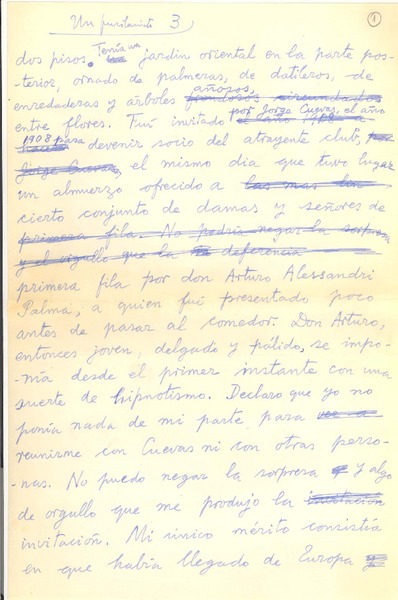 Un 3 1
dos pisos. Tenía un jardín oriental en la parte pos-
terior, ornado de palmeras, de datileros, de
enredaderas y árboles añosos, frondosos circundados
entre flores. Fuí invitado por Jorge Cuevas, el año
1908 para devenir socio del atrayente club,
Jorge Cuevas, el mismo dia que tuvo lugar
un almuerzo ofrecido a las mas
cierto conjunto de damas y señores de
primera fila. No podría negar la sorpresa
y el orgullo que la deferencia
primera fila por don Arturo Alessandri
Palma, a quien fuí presentado poco
antes de pasar al comedor. Don Arturo,
entonces joven, delgado y pálido, se impo-
nía desde el primer instante con una
suerte de hipnotismo. Declaro que yo no
ponía nada de mi parte para
reunirme con Cuevas ni con otras perso-
nas. No puedo negar la sorpresa y algo
de orgullo que me produjo la invitación
invitación. Mi único mérito consistía
en que había llegado de Europa y